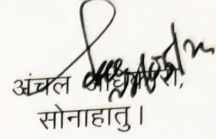 अंचल अधिकारी,
सोनाहातु।